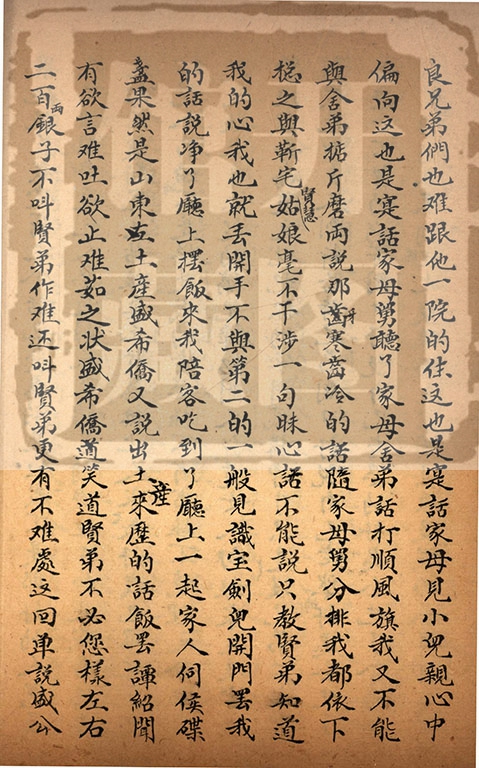 良兄弟們也难跟他一院的住这也是寔話家母見小兒親心中
偏向这也是寔話家母舅聽了家母舍弟話打順風旗我又不能
與舍弟掂斤磨両說那齒牙寒齒冷的話隨家母舅分排我都依下
摠之與靳宅姑賢慧娘毫不干涉一句昧心話不能說只教賢弟知道
我的心我也就丟開手不與第二的一般見識宝劍兒開門罢我
的話說净了廳上擺飯來我陪客吃到了廳上一起家人伺侯碟
盞果然是山東左土産盛希僑又說出土産來歷的話飯罢譚紹聞
有欲言难吐欲止难茹之状盛希僑道笑道賢弟不必您樣左右
二百両銀子不呌賢弟作难还呌賢弟更有不难處这回車說盛公